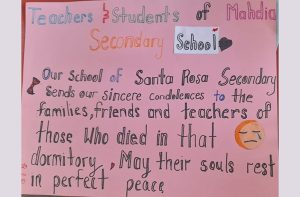 Teachers & Students of Mahdia
Secondary School
Our School of Santa Rosa Secondary
Sends our sincere condolences to the
families, friends and teachers of
those who died in that
dormitory, May their souls rest
in perfect peace